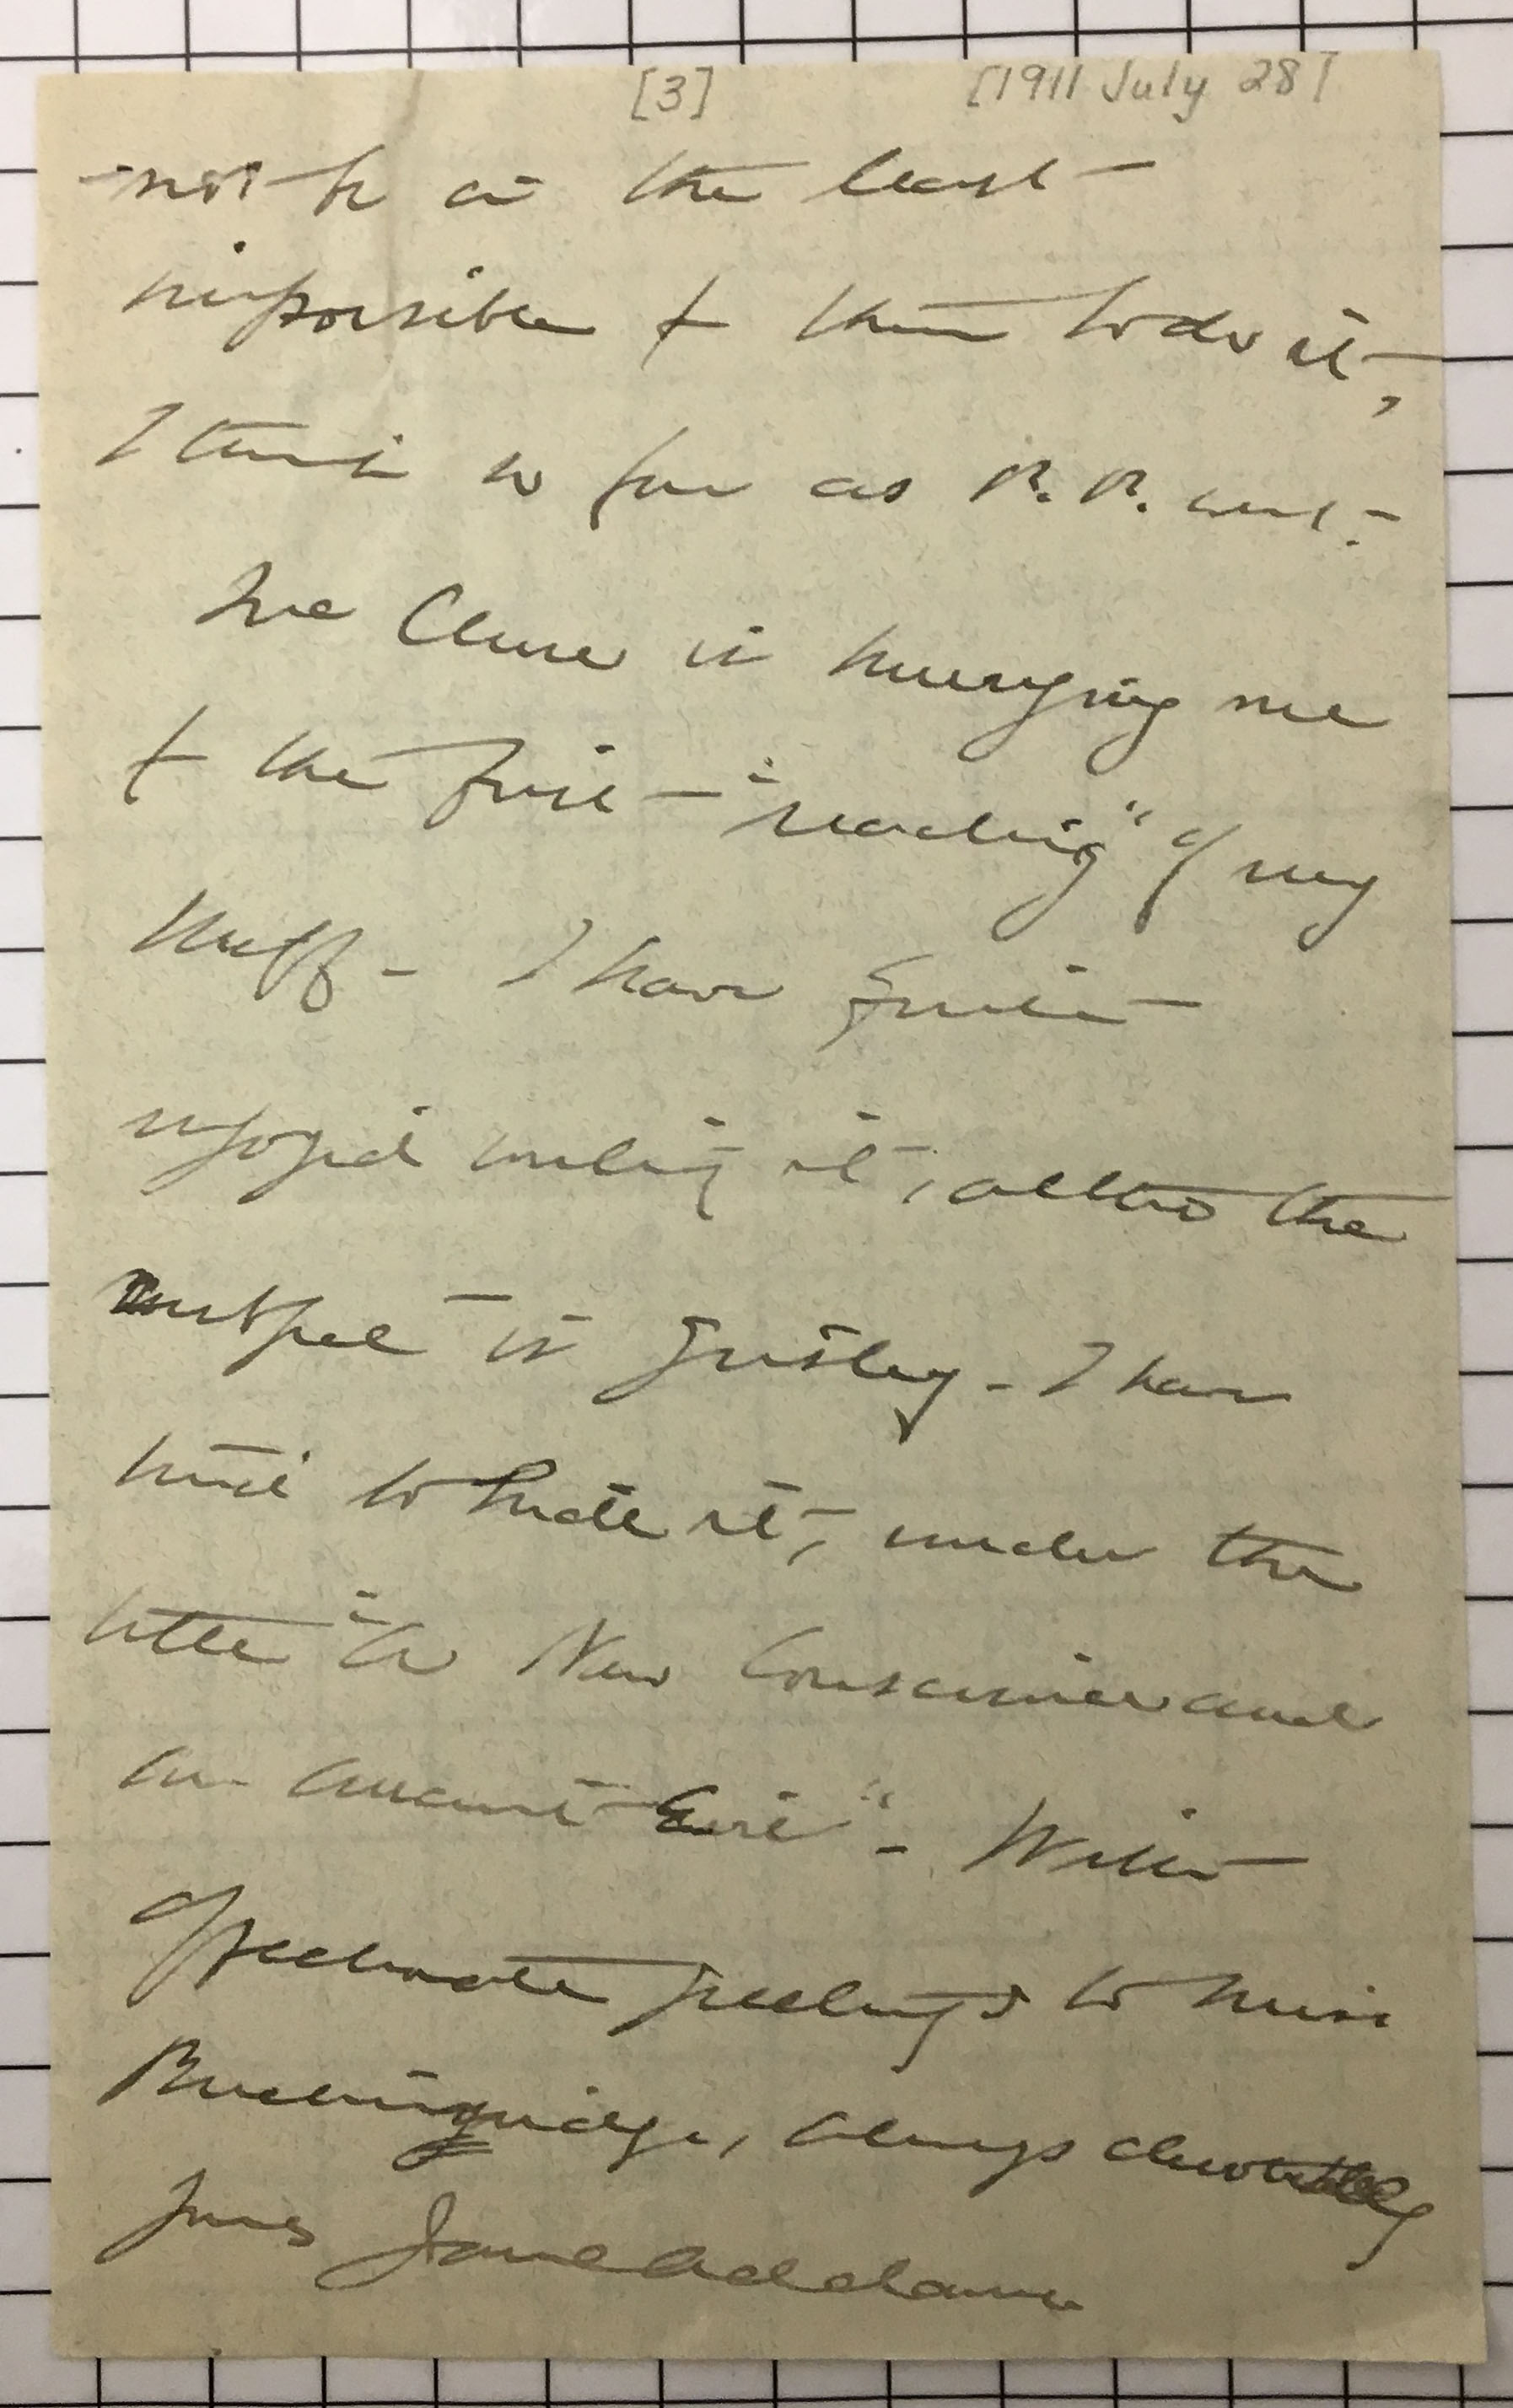 [3] [1911 July 28]
not be in the least
impossible for them to do it,
I think so far as R. R. went.
McClure is hurrying me
for the first "reading" of my
stuff - I have quite
enjoyed writing it, altho the
subject is grisley - I have
tried to treat it, under the
title "A New Conscience and
an Ancient Evil" - With
affectionate greetings to Miss
Breckinridge, always devotedly
yours Jane Addams